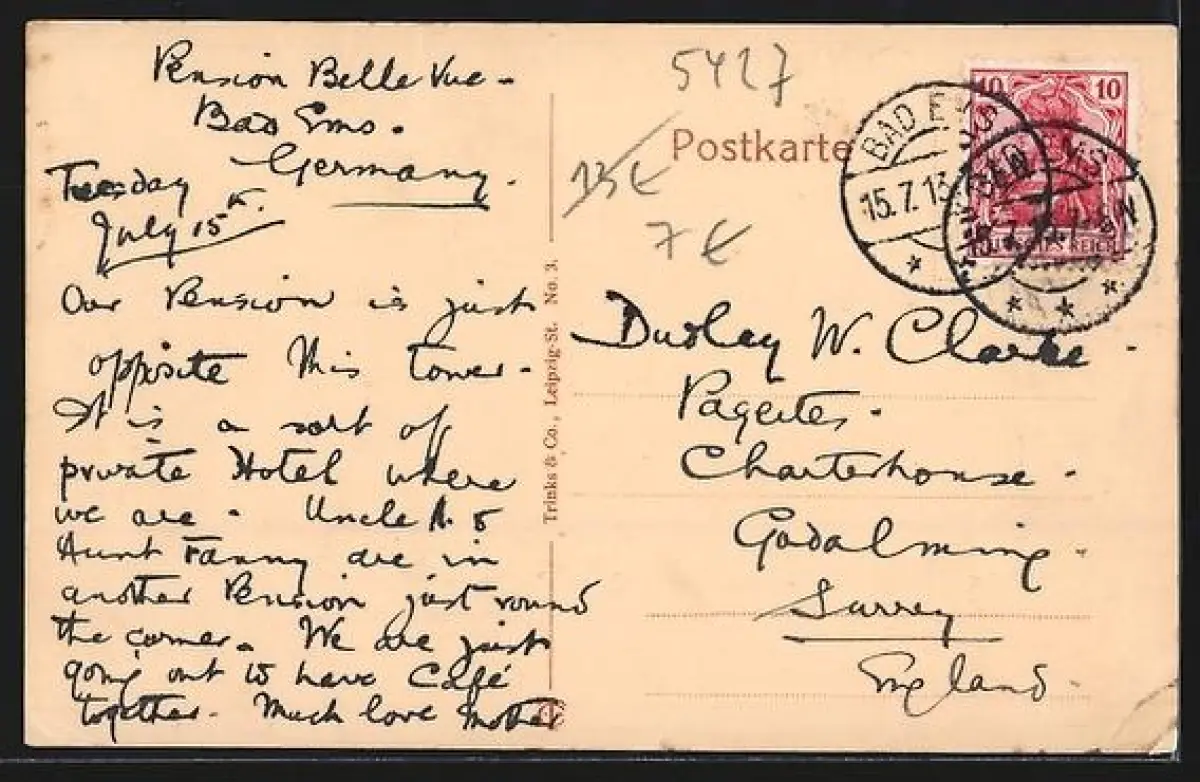 Pension Belle Vue -
Bad Ems.
Germany.
Tuesday
July 15th.
Our Pension is just
opposite this tower.
It is a sort of
private Hotel where
we are. Uncle A. &
Aunt Fanny are in
another Pension just round
the corner. We are just
going out to have Café
together. Much love Mother
Trinks & Co., Leipzig-St. No. 3.
5427
Postkarte
13€
7€
10 10
DEUTSCHES REICH
BAD EMS
15.7.13
BAD EMS
Dudley W. Clarke.
Pageites.
Charterhouse.
Godalming.
Surrey
England.